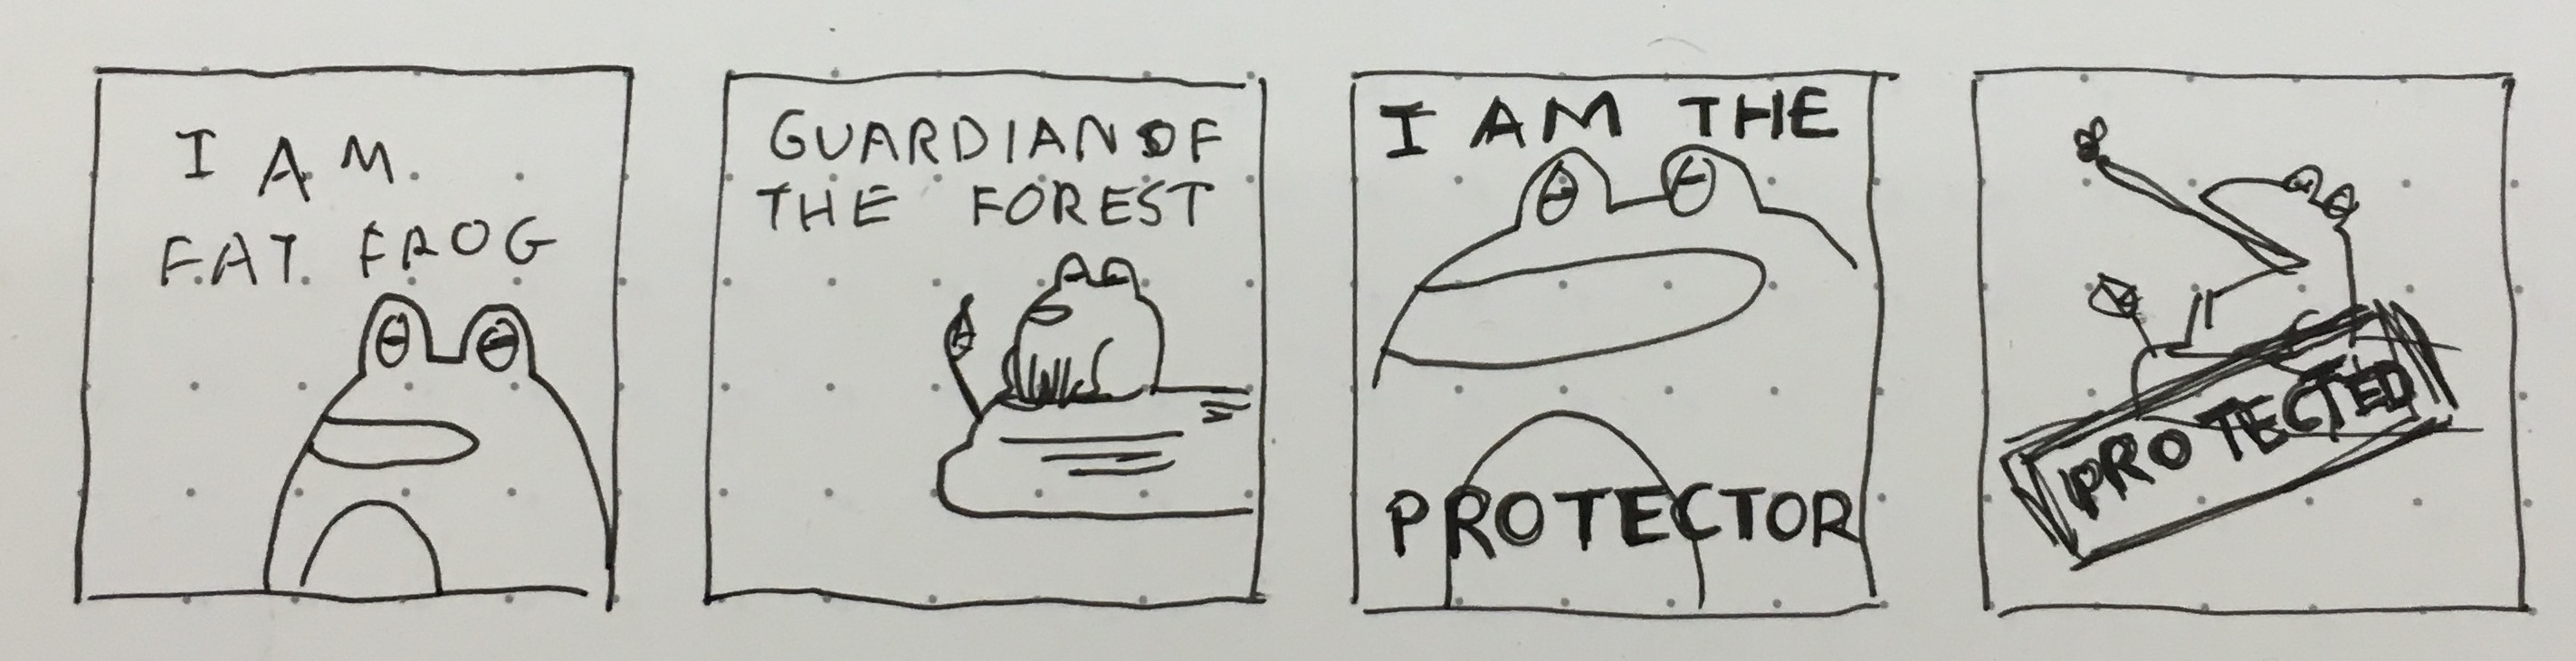 I AM
FAT FROG
GUARDIAN OF
THE FOREST
I AM THE
PROTECTOR
PROTECTED